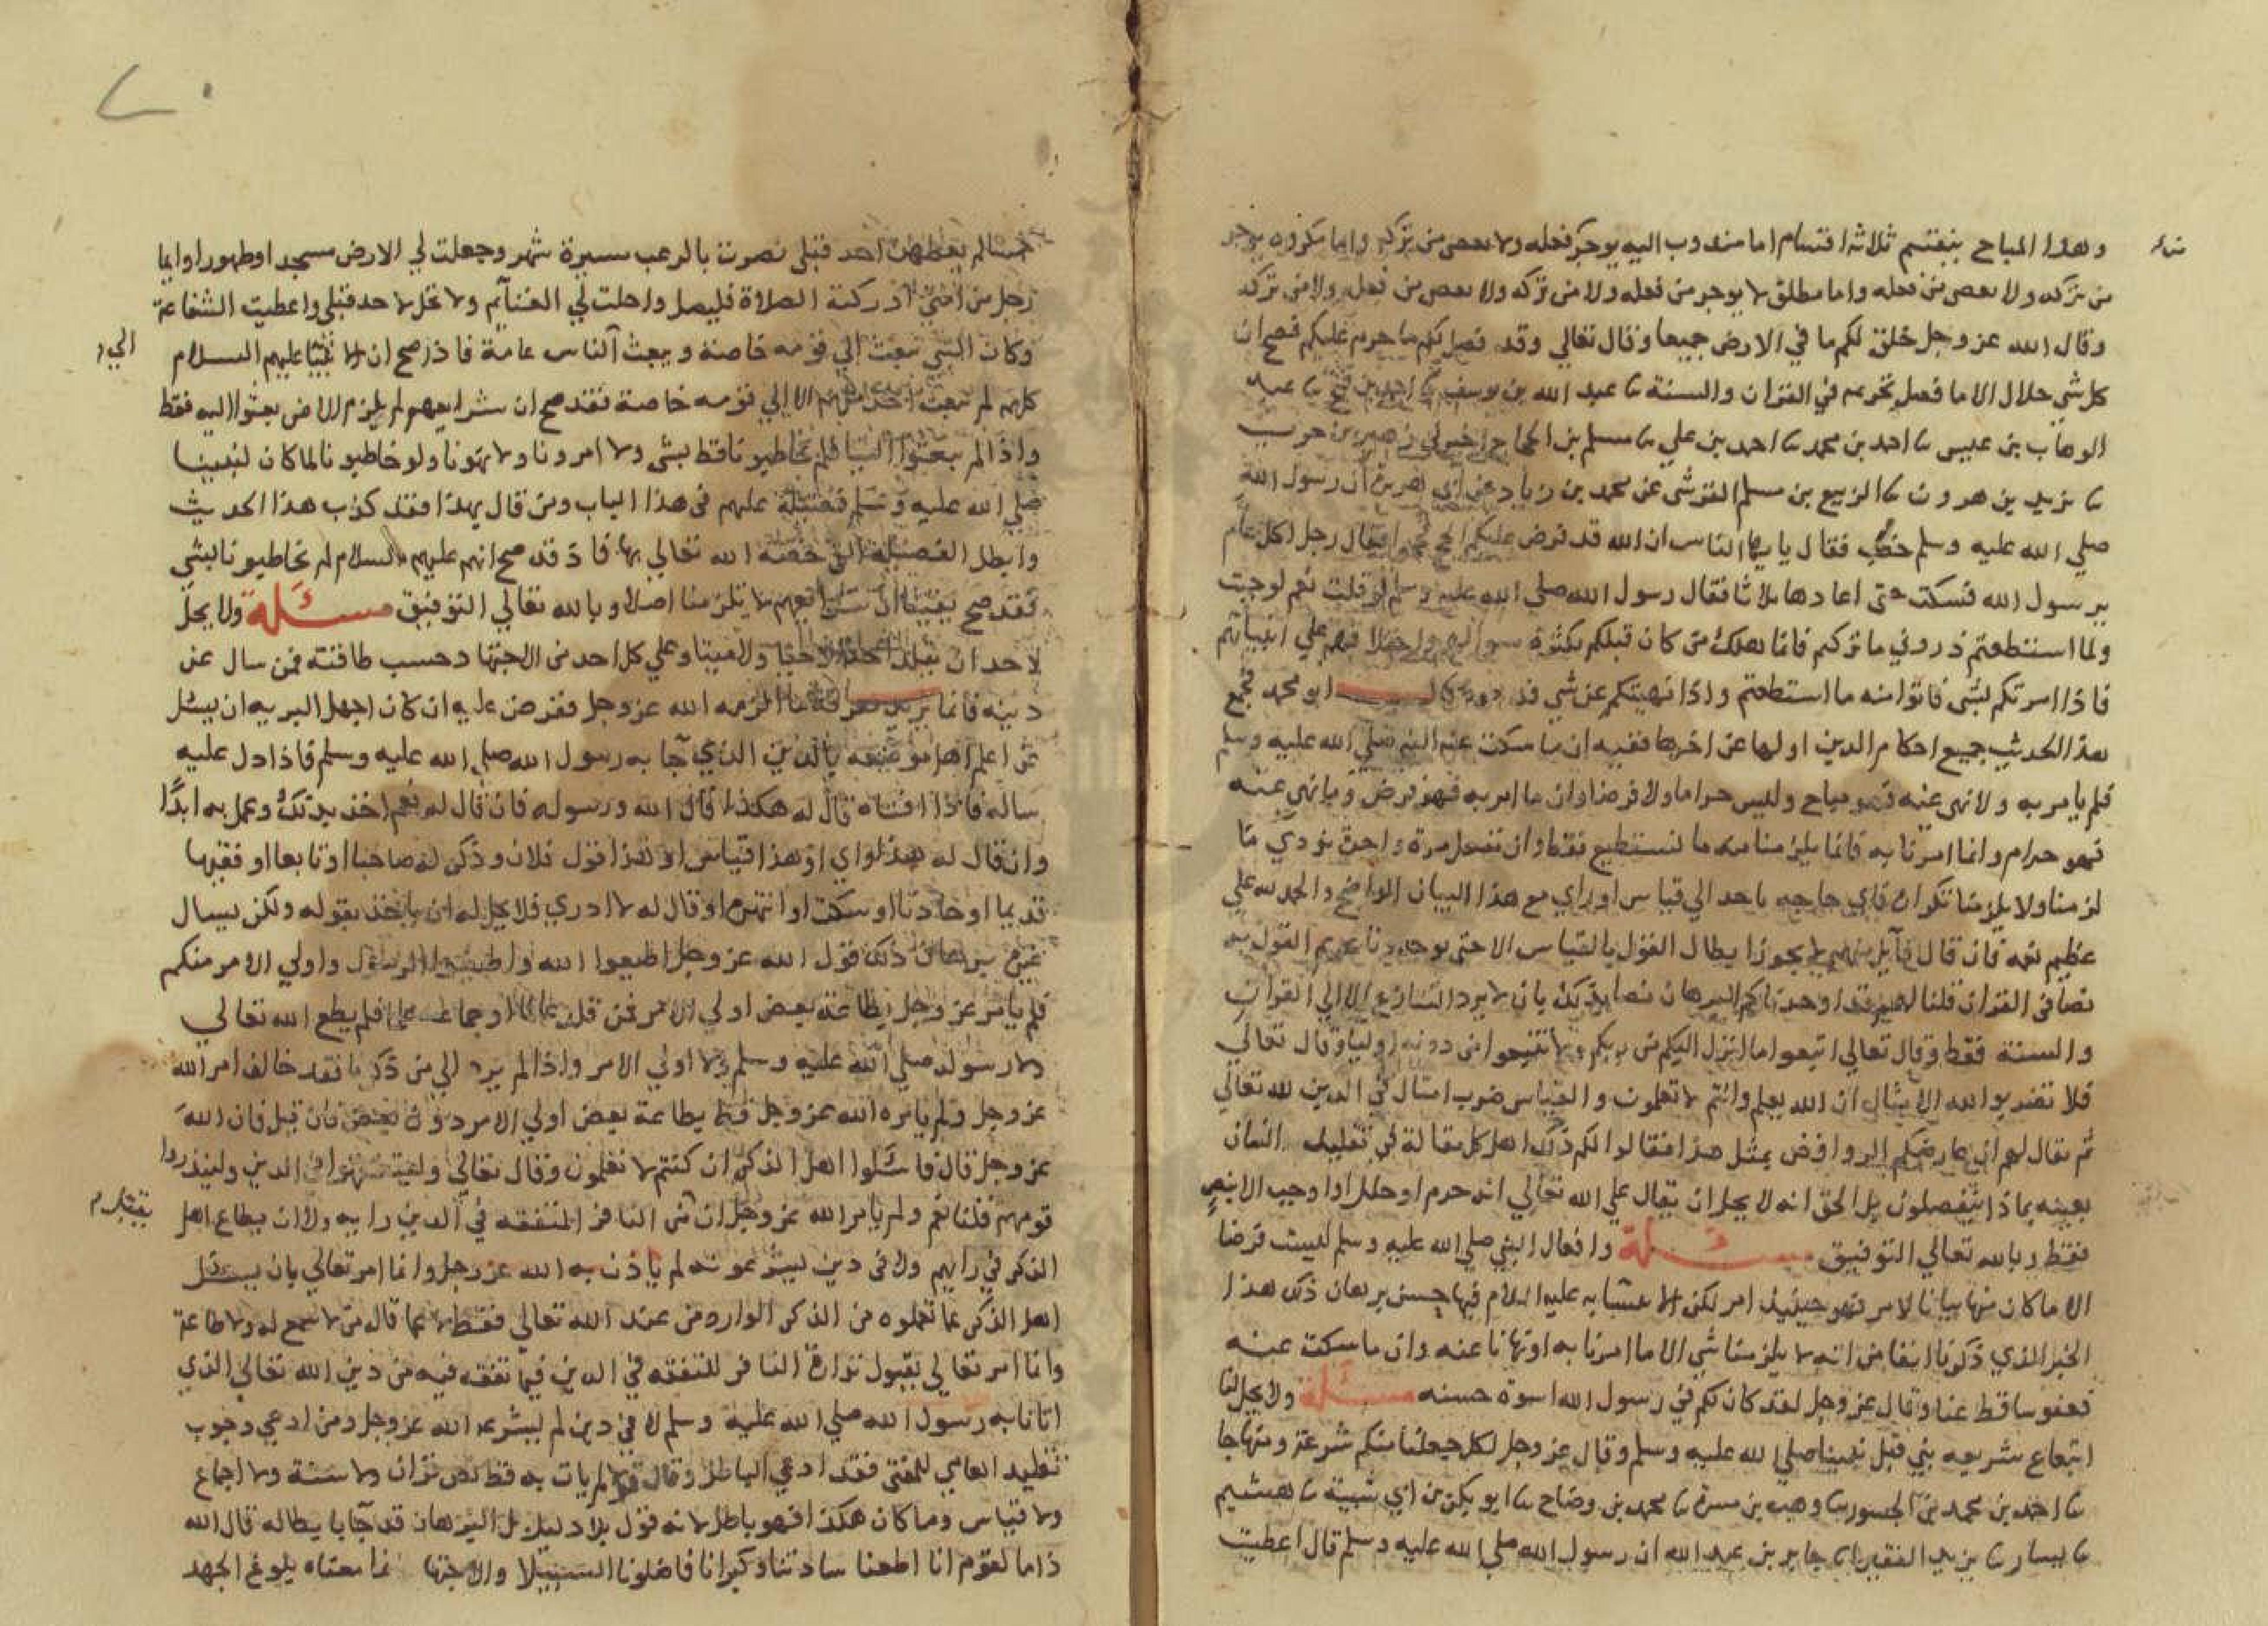 وهذا المباح ينقسم ثلاثة اقسام اما مندوب اليه يوجر فعله ولا يعصى من تركه واما مكروه يوجر
من تركه ولا يعصى من فعله واما مطلق لا يوجر من فعله ولا من تركه ولا يعصى من فعله ولا من تركه
وقال الله عز وجل خلق لكم ما في الارض جميعا وقال تعالي وقد فصل لكم ما حرم عليكم فصح ان
كل شي حلال الا ما فصل تحريمه في القران والسنة نا عبد الله بن يوسف نا احمد بن فتح نا عبد
الوهاب بن عيسى نا احمد بن محمد نا احمد بن علي نا مسلم بن الحجاج اخبرني زهير بن حرب
نا يزيد بن هرون نا الربيع بن مسلم القرشي عن محمد بن زياد عن ابي هريرة ان رسول الله
صلي الله عليه وسلم خطب فقال يا ايها الناس ان الله قد فرض عليكم الحج فحجوا فقال رجل اكل عام
يرسول الله فسكت حتى اعادها ثلاثا فقال رسول الله صلي الله عليه وسلم لو قلت نعم لوجبت
ولما استطعتم ذروني ما تركتم فانما هلك من كان قبلكم بكثرة سوالهم واختلافهم علي انبيائهم
فاذا امرتكم بشى فاتوا منه ما استطعتم واذا نهيتكم عن شي فدعوه قال ابو محمد فجمع
هذا الحديث جميع احكام الدين اولها عن اخرها ففيه ان ما سكت عنه النبي صلي الله عليه وسلم
فلم يامر به ولا نهى عنه فهو مباح وليس حراما ولا فرضا وان ما امر به فهو فرض وما نهى عنه
فهو حرام وانما امرنا به فانما يلزمنا منه ما نستطيع فقط وان نفعل مرة واحدة نودي ما
لزمنا ولا يلزمنا تكراره فاي حاجه باحد الي قياس او راي مع هذا البيان الواضح والحمد لله علي
عظيم نعمه فان قال قايل منهم لا يجوز ابطال القول بالقياس الا حتى توجدونا تحريم القول به
نصا في القران قلنا لهم قد اوجدناكم البرهان نصا بذلك بان لا يرد التنازع الا الي القران
والسنة فقط وقال تعالي اتبعوا ما انزل اليكم من ربكم ولا تتبعوا من دونه اوليا وقال تعالي
فلا تضربوا لله الامثال ان الله يعلم وانتم لا تعلمون والقياس ضرب امثال في الدين لله تعالي
ثم يقال لهم ان عارضكم الروافض بمثل هذا فقالوا لكم ذلك اهل كل مقالة في تقليد انسان
بعينه بماذا تنفصلون بل الحق انه لا يحل ان يقال علي الله تعالي انه حرم او حلل او اوجب الا بنص
فقط وبالله تعالي التوفيق مسئلة وافعال النبي صلي الله عليه وسلم ليست فرضا
الا ما كان منها بيانا لامر فهو حينيذ امر لكن الايتسا به عليه السلام فيها حسن برهان ذلك هذا
الخبر الذي ذكرنا انفا من انه لا يلزمنا شي الا ما امرنا به او نهانا عنه وان ما سكت عنه
فعفو ساقط عنا وقال عز وجل لقد كان لكم في رسول الله اسوة حسنه مسئلة ولا يحل لنا
اتباع شريعه نبي قبل نبينا صلي الله عليه وسلم وقال عز وجل لكل جعلنا منكم شرعة ومنهاجا
نا احمد بن محمد بن الجسور نا وهب بن مسرة نا محمد بن وضاح نا ابو بكر بن ابي شيبة نا هشيم
نا سيار نا يزيد الفقير انا جابر بن عبد الله ان رسول الله صلي الله عليه وسلم قال اعطيت
خمسا لم يعطهن احد قبلى نصرت بالرعب مسيرة شهر وجعلت لي الارض مسجدا وطهورا وايما
رجل من امتي ادركته الصلاة فليصل واحلت لي الغنايم ولم تحل لاحد قبلي واعطيت الشفاعة
وكان النبي يبعث الي قومه خاصة وبعثت الي الناس عامة فاذا صح ان الانبيا عليهم السلام
كلهم لم يبعث احد منهم الا الي قومه خاصة فقد صح ان شرايعهم لم تلزم الا من بعثوا اليه فقط
واذا لم يبعثوا الينا فلم يخاطبونا قط بشى ولا امرونا ولا نهونا ولو خاطبونا لما كان لنبينا
صلي الله عليه وسلم فضيلة عليهم في هذا الباب ومن قال بهذا فقد كذب هذا الحديث
وابطل الفضيلة التي خصه الله تعالي بها فاذ قد صح انهم عليهم السلام لم يخاطبونا بشي
فقد صح يقينا ان شرايعهم لا تلزمنا اصلا وبالله تعالي التوفيق مسئلة ولا يحل
لاحد ان يقلد احدا لا حيا ولا ميتا وعلي كل احد من الاجتهاد حسب طاقته فمن سال عن
دينه فانما يريد معرفة ما الزمه الله عز وجل ففرض عليه ان كان اجهل البريه ان يسئل
عن اعلم اهل موضعه بالدين الذي جا به رسول الله صلي الله عليه وسلم فاذا دل عليه
ساله فاذا افتاه قال له هكذا قال الله ورسوله فان قال له نعم اخذ بذلك وعمل به ابدا
وان قال له هذا راي او هذا قياس او هذا قول فلان وذكر له صاحبا او تابعا او فقيها
قديما او حادثا او سكت او انتهره او قال له لا ادري فلا يحل له ان ياخذ بقوله ولكن يسال
غيره برهان ذلك قول الله عز وجل اطيعوا الله واطيعوا الرسول واولي الامر منكم
فلم يامر عز وجل بطاعة بعض اولي الامر فمن قلد عالما او جماعة علما فلم يطع الله تعالي
ولا رسوله صلي الله عليه وسلم ولا اولي الامر واذا لم يرد الي من ذكرنا فقد خالف امر الله
عز وجل ولم يامره الله عز وجل قط بطاعة بعض اولي الامر دون بعض فان قيل فان الله
عز وجل قال فاسئلوا اهل الذكر ان كنتم لا تعلمون وقال تعالي وليتفقهوا في الدين ولينذروا
قومهم قلنا نعم ولم يامر الله عز وجل ان من النافر المتفقه في الدين رايه ولا ان يطاع اهل
الذكر في رايهم ولا في دين يشرعونه لم ياذن به الله عز وجل وانما امر تعالي بان يسئل
اهل الذكر عما تعلموه من الذكر الوارد من عند الله تعالي فقط لا عما قاله من لا سمع له ولا طاعة
وانما امر تعالي بقبول نذارة النافر للتفقه في الدين فيما تفقه فيه من دين الله تعالي الذي
اتانا به رسول الله صلي الله عليه وسلم لا في دين لم يشرعه الله عز وجل ومن ادعي وجوب
تقليد العامي للمفتي فقد ادعي الباطل وقال قولا لم يات به قط نص قران ولا سنة ولا اجماع
ولا قياس وما كان هكذا فهو باطل لانه قول بلا دليل بل البرهان قد جا بابطاله قال الله
ذاما لقوم انا اطعنا سادتنا وكبرانا فاضلونا السبيلا والاجتها انما معناه بلوغ الجهد